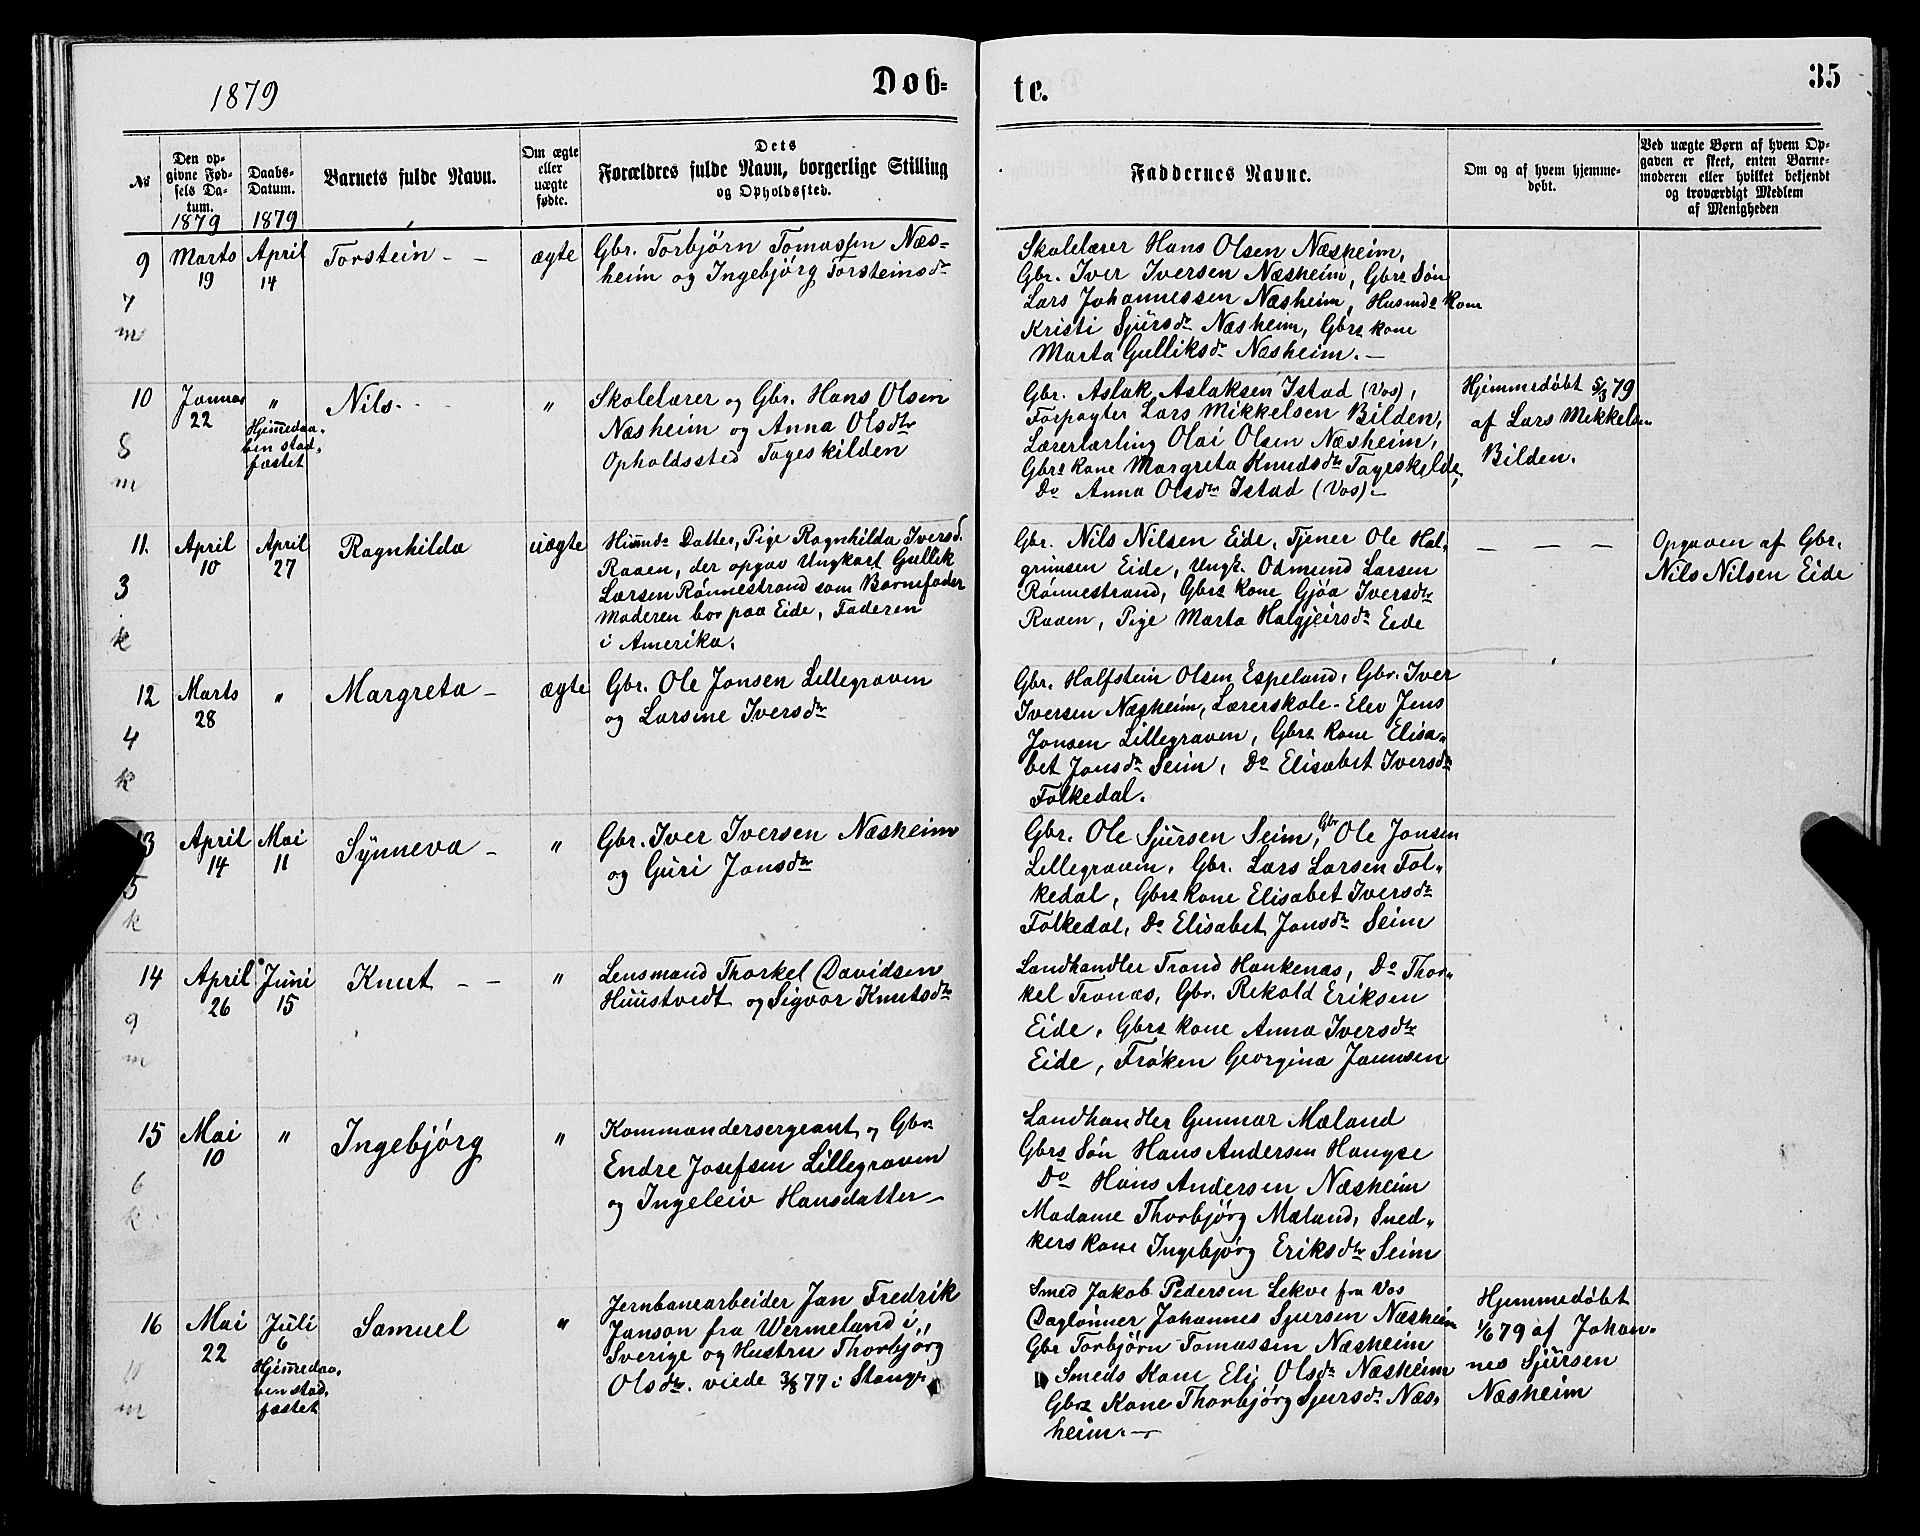 1879
Døb-
te.
35
No
Den op-
givne Fød-
sels Da-
tum.
1879
Daabs-
Datum.
1879
Barnets fulde Navn.
Om ægte
eller
uægte
fødte.
Dets
Forældres fulde Navn, borgerlige Stilling
og Opholdssted.
Faddernes Navne.
Om og af hvem hjemme-
døbt.
Ved uægte Børn af hvem Op-
gaven er skeet, enten Barne-
moderen eller hvilket bekjendt
og troværdigt Medlem
af Menigheden
9
7
m
Marts
19
April
14
Torstein - -
ægte
Gbr. Torbjørn Tomassen Næs-
heim og Ingebjørg Torsteinsdtr
Skolelærer Hans Olsen Næsheim,
Gbr. Iver Iversen Næsheim, Gbrs Søn
Lars Johannessen Næsheim, Husmds Kone
Kristi Sjursdtr Næsheim, Gbrs kone
Marta Gulliksdtr Næsheim. -
10
8
m
Januar
22
"
Hjemmedaa-
ben stad-
fæstet
Nils - - -
"
Skolelærer og Gbr. Hans Olsen
Næsheim og Anna Olsdtr
Opholdssted Tageskilden
Gbr. Aslak Aslaksen Istad (Vos),
Forpagter Lars Mikkelsen Bilden,
Lærerlærling Olai Olsen Næsheim,
Gbrs kone Margreta Knudsdtr Tageskilde,
Do Anna Olsdtr Istad (Vos) -
Hjemmedøbt 5/3 79
af Lars Mikkelsen
Bilden.
11.
3
k
April
10
April
27
Ragnhilda
uægte
Husmds Datter, Pige Ragnhilda Iversd.
Raaen, der opgav Ungkarl Gullik
Larsen Rønnestrand som Barnefader
Moderen bor paa Eide, Faderen
i Amerika.
Gbr. Nils Nilsen Eide, Tjener Ole Hal-
grimsen Eide, Ungk. Odmund Larsen
Rønnestrand, Gbrs Kone Gjøa Iversdtr
Raaen, Pige Marta Halgjeirsdtr Eide
- - -
Opgaven af Gbr.
Nils Nilsen Eide
12
4
k
Marts
28
"
Margreta -
ægte
Gbr. Ole Jonsen Lillegraven
og Larsine Iversdtr
Gbr. Halfstein Olsen Espeland, Gbr. Iver
Iversen Næsheim, Lærerskole-Elev Jens
Jonsen Lillegraven, Gbrs kone Elisa-
bet Jonsdtr Seim, Do Elisabet Iversdtr
Folkedal.
13
5
k
April
14
Mai
11
Synneva -
"
Gbr. Iver Iversen Næsheim
og Guri Jonsdtr
Gbr. Ole Sjursen Seim, Gbr Ole Jonsen
Lillegraven, Gbr. Lars Larsen Fol-
kedal, Gbrs kone Elisabet Iversdtr
Folkedal, Do Elisabet Jonsdtr Seim
14
9
m
April
26
Juni
15
Knut - -
"
Lensmand Thorkel Davidsen
Huustvedt og Sigvor Knutsdtr
Landhandler Trond Hankenæs, Do Thor-
kel Tronæs, Gbr. Rikold Eriksen
Eide, Gbrs kone Anna Iversdtr
Eide, Frøken Georgina Jannsen
15
6
k
Mai
10
"
Ingebjørg
"
Kommandersergeant og Gbr
Endre Josefsen Lillegraven
og Ingeleiv Hansdatter -
Landhandler Gunnar Mæland
Gbrs Søn Hans Andersen Hangse
Do Hans Andersen Næsheim
Madame Thorbjørg Mæland, Sned-
kers kone Ingebjørg Eriksdtr Seim
16
11
m
Mai
22
Juli
6
Hjemmedaa-
ben stad-
fæstet
Samuel
"
Jernbanearbeider Jan Fredrik
Janson fra Wermeland i
Sverige og Hustru Thorbjørg
Olsdtr. viede 3/8 77 i Stange
Smed Jakob Pedersen Lekve fra Vos
Daglønner Johannes Sjursen Næsheim
Gbr Torbjørn Tomassen Næsheim
Smeds Kone Eli Olsdtr Næsheim
Gbrs Kone Thorbjørg Sjursdtr Næs-
heim. -
Hjemmedøbt
1/6 79 af Johan-
nes Sjursen
Næsheim